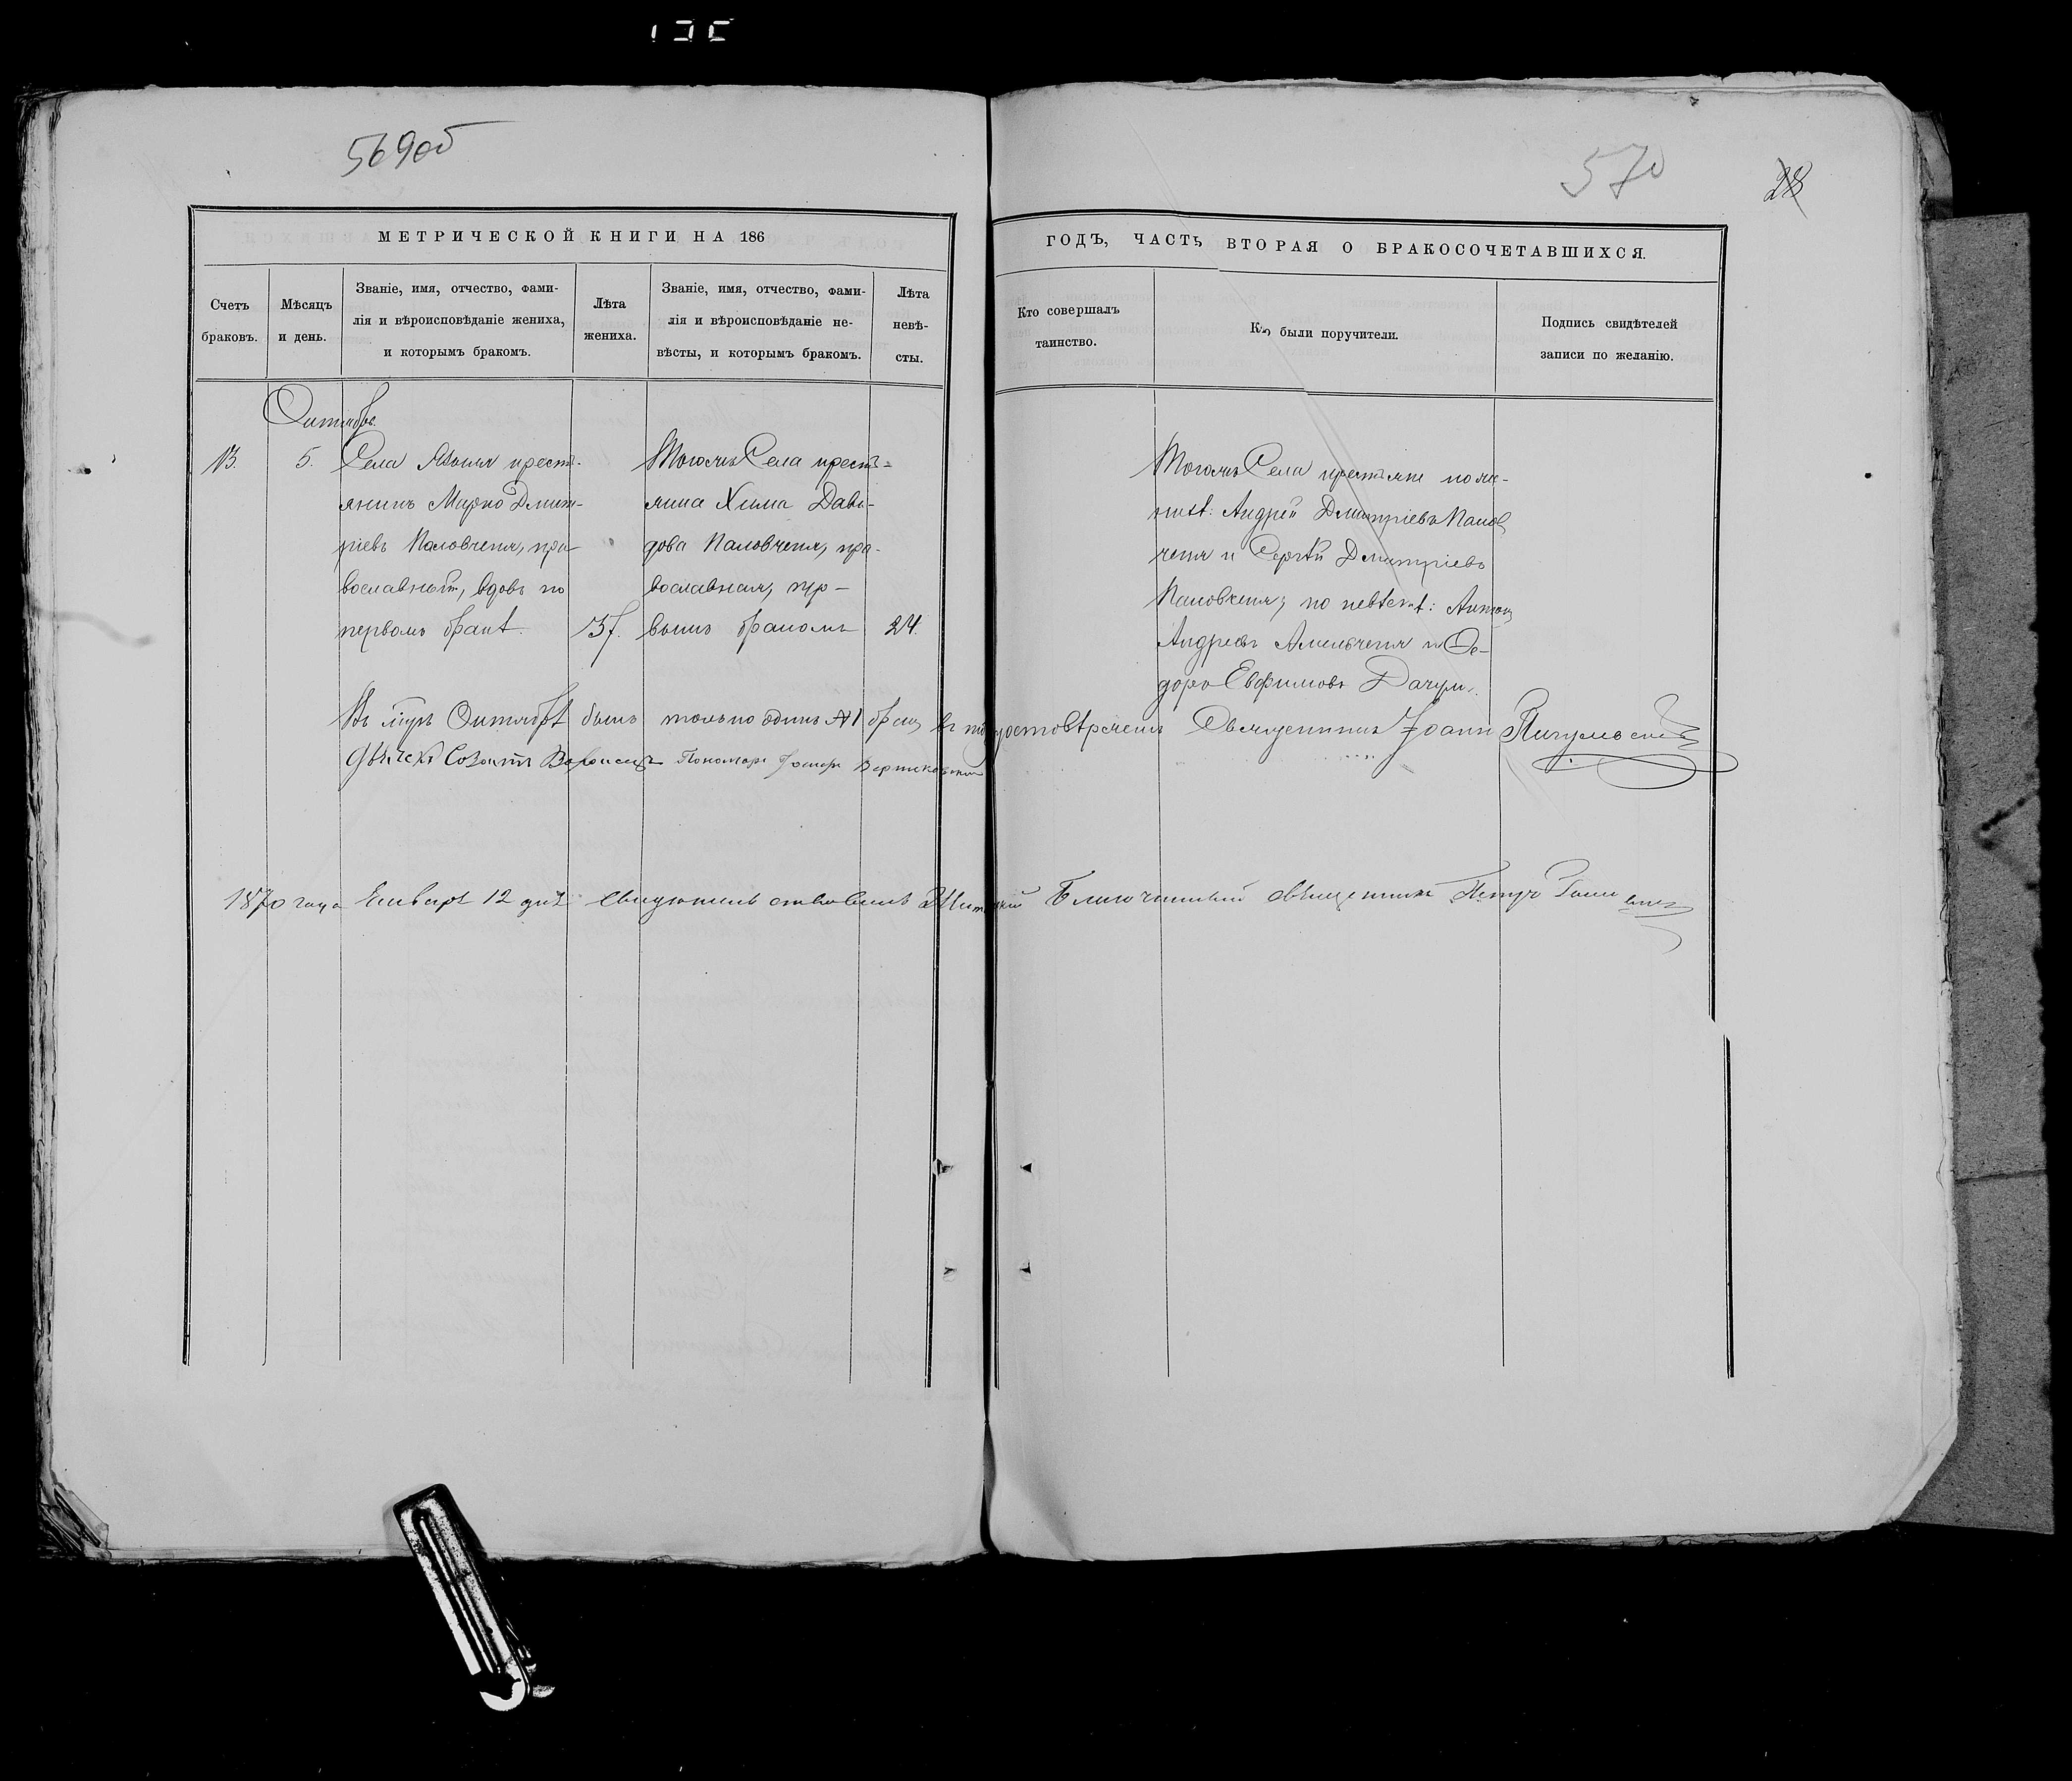 569об
570
28
МЕТРИЧЕСКОЙ КНИГИ НА 186
ГОДЪ, ЧАСТЬ ВТОРАЯ О БРАКОСОЧЕТАВШИХСЯ.
Счетъ браковъ.
Мѣсяцъ и день.
Званіе, имя, отчество, фами-
лія и вѣроисповѣданіе жениха,
и которымъ бракомъ.
Лѣта жениха.
Званіе, имя, отчество, фами-
лія и вѣроисповѣданіе не-
вѣсты, и которымъ бракомъ.
Лѣта невѣ-
сты.
Кто совершалъ
таинство.
Кто были поручители.
Подпись свидѣтелей
записи по желанію.
Октябрь.
13.
5.
Села крестъ-
янинъ Марко Дмит-
ріевъ Паловченя, пра-
вославный, вдовъ по
первомъ бракѣ.
37.
Тогожъ Села крестъ-
янка Хима Давы-
дова Паловченя, пра-
вославная, пер-
вымъ бракомъ
24.
Тогожъ Села крестьяне по же-
нихѣ: Андрей Дмитріевъ Палов
ченя и Сергѣй Дмитріевъ
Паловченя; по невѣстѣ: Антонъ
Андреевъ Амельченя и Ѳе-
доръ Евфимовъ
Октябрѣ былъ только одинъ №1 бракъ въ Священникъ Іоаннъ Пигулевскій
Дьячекъ Созонтъ Пономарь
1870 года Генваря 12 дня Благочинный Священникъ Петръ